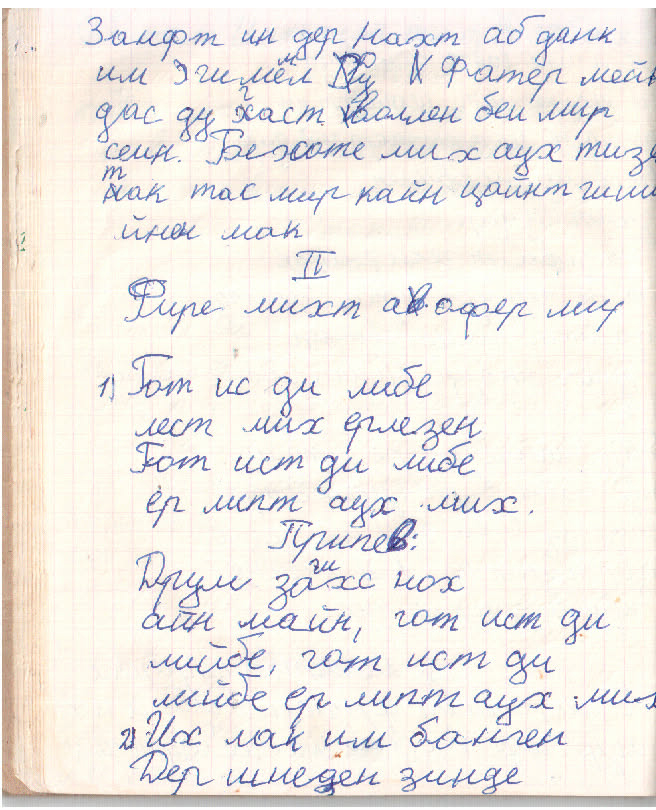 Занфт ин дер нахт аб данк
им Эгимёл Ду Х Фатер мейн
дас ду хаст воллен беи мир
сеин. Бехоте мих аух тизе
так тас мир кайн цайнт
йнен мак
II
Фире михт ав офер мир
1) Гот ис ди либе
лест мих ерлезен
Гот ист ди либе
ер липт аух мих.
Припев:
Друм загис нох
айн майн, гот ист ди
лийбе, гот ист ди
лийбе ер липт аух мих
2) Их лак им банген
Дер шнеден зинде